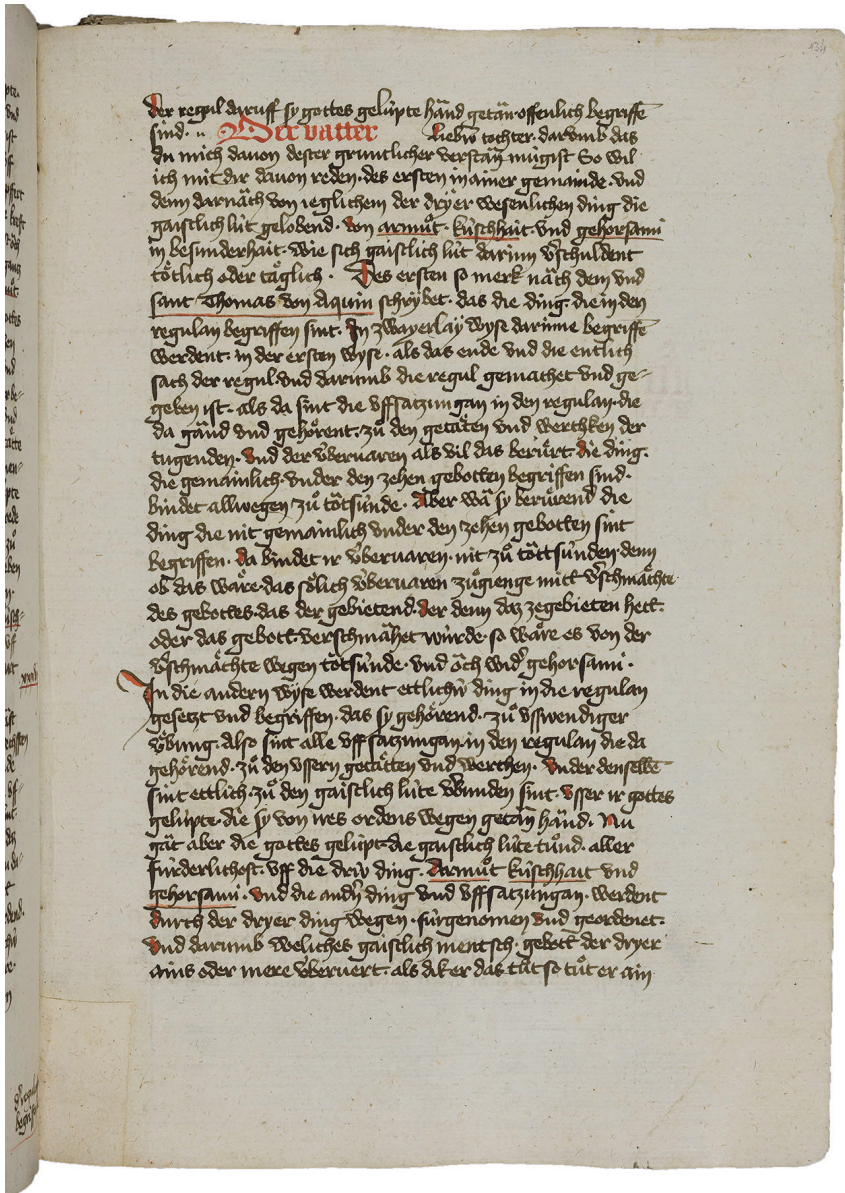 134
der regul daruff sy gottes gelüpte händ getän offenlich begriffē
sind. Der vatter Liebiv tochter. darvmb das
du mich dauon dester gruntlicher verstän mügist So wil
ich mit dir dauon reden. des ersten in ainer gemainde. vnd
denn darnäch von ieglichem der dryer wesenlichen ding die
gaistlich lüt gelobend. von armůt. küschhait. vnd gehorsami
in besunderhait. wie sich gaistlich lüt darinn v̄schuldent
tötlich oder täglich. Des ersten so merk näch dem vnd
sant Thomas von Aquin schrybet. das die ding. die in den
regulan begriffen sint. In zwayerlay wyse darinne begriffē
werdent. in der ersten wyse. als das ende vnd die entlich
sach der regul. vnd darumb die regul gemachet vnd ge-
geben ist. als da sint die vffsatzungan in den regulan. die
da gänd vnd gehörent. zů den getäten vnd werchken der
tugenden. vnd der v̈beruaren als vil das berürt. die ding.
die gemainlich. vnder den zehen gebotten begriffen sind.
bindet allwegen zů tötsünde. Aber wä sy berürend die
ding die nit gemainlich vnder den zehen gebotten sint
begriffen. da bindet ir v̈beruaren. nit zů töttsünden. denn
ob das wäre. das sölich v̈beruaren zůgienge mitt v̄schmächte
des gebottes. das der gebietend. der denn daz zegebieten hett.
oder das gebott. verschmähet würde. so wäre es von der
v̄schmächte wegen tötsünde. vnd öch wid̄ gehorsami.
In die andern wyse werdent ettlichiv ding in die regulan
gesetzt vnd begriffen. das sy gehörend. zů vsswendiger
v̈bung. Also sint alle vffsatzungan. in den regulan die da
gehörend. zů den vssern getätten vnd werchen. vnder denselbē
sint ettlich. zů den gaistlich lüte v̄bunden sint. vsser ir gottes
gelüpte. die sy von ires ordens wegen getän händ. Nu
gät aber die gottes gelüpt. die gaistlich lüte tůnd. aller
fürderlichost. vff die driv ding. darmůt küschhait vnd
gehorsami. vnd die and̄n ding vnd vffsatzungan. werdent
durch der dryer ding wegen. fürgenomen vnd geordenet.
vnd darumb weliches gaistlich mentsch. gebott der dryer
ains oder mere v̈beruert. als diker das tůt so tůt er ain